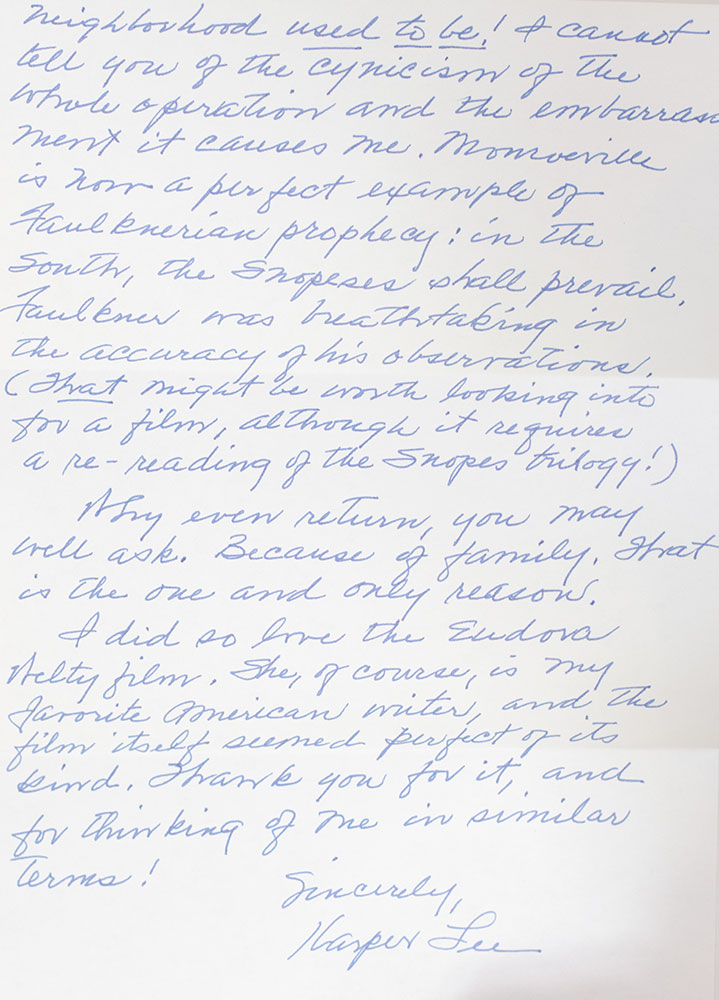 neighborhood used to be! I cannot
tell you of the cynicism of the
whole operation and the embarrass
ment it causes me. Monroeville
is now a perfect example of
Faulknerian prophecy: in the
South, the Snopeses shall prevail.
Faulkner was breathtaking in
the accuracy of his observations.
(That might be worth looking into
for a film, although it requires
a re-reading of the Snopes trilogy!)
Why even return, you may
well ask. Because of family. That
is the one and only reason.
I did so love the Eudora
Welty film. She, of course, is my
favorite American writer, and the
film itself seemed perfect of its
kind. Thank you for it, and
for thinking of me in similar
terms!
Sincerely,
Harper Lee